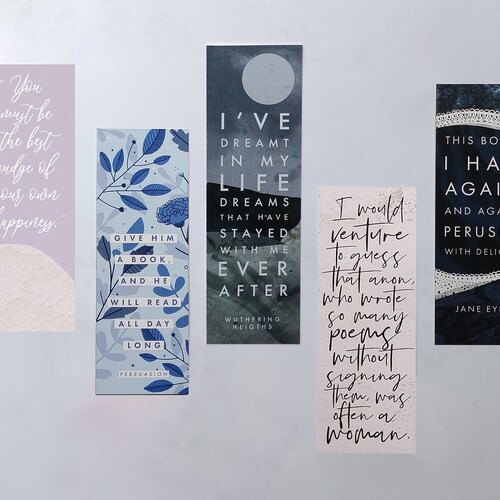 You
must be
the best
judge of
your own
happiness.
GIVE HIM
A BOOK,
AND HE
WILL READ
ALL DAY
LONG
PERSUASION
I'VE
DREAMT
IN MY
LIFE
DREAMS
THAT HAVE
STAYED
WITH ME
EVER
AFTER
WUTHERING
HEIGTHS
I would
venture
to guess
that anon,
who wrote
so many
poems
without
signing
them, was
often a
woman.
THIS BO
I HA
AGAI
AND AGA
PERUS
WITH DELIG
JANE EY